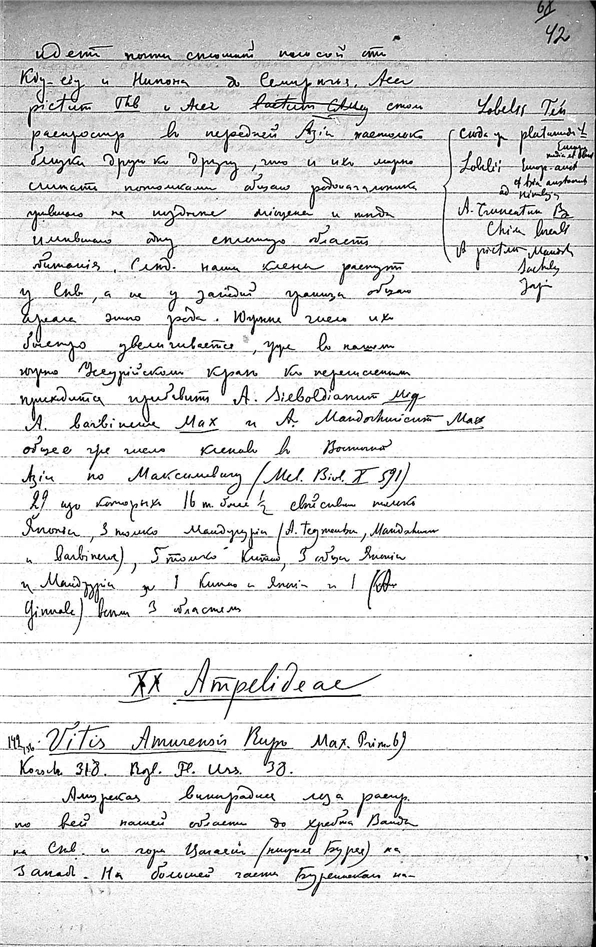 42
идетъ почти сплошной полосой отъ
и Нипона до Семирѣчья. Acer
pictum Thb и Acer laetum столь
распростр въ передней Азіи настолько
близки другъ ко другу, что и ихъ можно
считать потомками общаго родоначальника
не позднѣе міоцена и тогда
имѣвшаго одну сплошную область
обитанія. Слѣд. наши клены растутъ
у Скв, а не у западн границы общаго
ареала этого рода. Южнѣе число ихъ
быстро увеличивается, уже въ нашемъ
южно Уссурійскомъ краѣ къ перечисленнымъ
приходится прибавить A. Sieboldianum Miq
A. barbinerve Max и A. Mandschuricum Max
общее же число кленовъ въ Восточной
Азіи по Максимовичу (Mel. Biol. X 591)
29 изъ которыхъ 16 т. болѣе ½ свойственны только
Японіи, 3 только Манджуріи (A. tegmentos, Mandshur
и barbinerve), 5 только Китаю, 3 общи Японіи
и Манджуріи, 1 Китаю и Японіи и 1 (A
Ginnale) всѣмъ 3 областямъ
Lobelii Ten
сюда platanoides L
Lobelii
A. truncatum Bg
China borealis
A pictum Mandsh
Sachalin
Jap
XX Ampelideae
Vitis Amurensis Rupr Max. Prim 69
Korsh. 318. Rgl. Fl. Uss. 38.
Амурская виноградная лоза распр.
по всей нашей области до хребта Ванда
на Скв. и горъ (нижнѣе Буреи) на
Западъ. На большей части Буреинскаго на-